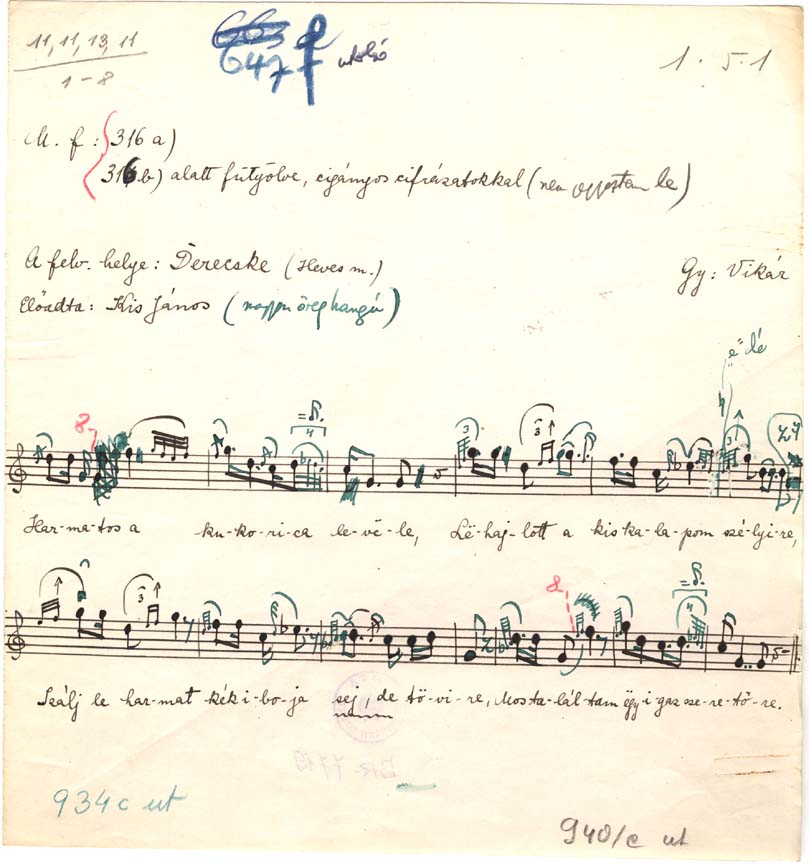 11, 11, 13, 11
1-8
647 utolsó
1. 5. 1
M. f: 316 a)
316 b) alatt fütyölve, cigányos cifrázatokkal (nem le)
A felv. helye: Derecske (Heves m.)
Gy: Vikár
Előadta: Kis János (nagyon öreg hangú)
"é" dé
8
= 4
3 3 3
Har-ma-tos a ku-ko-ri-ca le-vé-le, Lë-haj-lott a kis ka-la-pom szé-lyi-re,
3 8 = 4
Szálj le har-mat kék i-bo-ja sej, de tö-vi-re, Mos ta-lál-tam ëgy i-gaz sze-re-tő-re.
934c ut
940/c ut